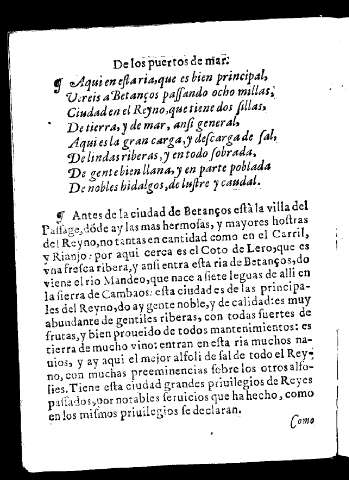 De los puertos de mar.
¶ Aqui en esta ria, que es bien principal,
Vereis a Betanços passando ocho millas,
Ciudad en el Reyno, que tiene dos sillas,
De tierra, y de mar, ansi general,
Aqui es la gran carga, y descarga de sal,
De lindas riberas, y en todo sobrada,
De gente bien llana, y en parte poblada
De nobles hidalgos, de lustre y caudal.
¶ Antes de la ciudad de Betanços està la villa del
Passage, dóde ay las mas hermosas, y mayores hostras
del Reyno, no tantas en cantidad como en el Carril,
y Rianjo: por aqui cerca es el Coto de Lero, que es
vna fresca ribera, y ansi entra esta ria de Betanços, do
viene el rio Mandeo, que nace a siete leguas de alli en
la sierra de Cambaos: esta ciudad es de las principa-
les del Reyno, do ay gente noble, y de calidad: es muy
abundante de gentiles riberas, con todas suertes de
frutas, y bien proueido de todos mantenimientos: es
tierra de mucho vino: entran en esta ria muchos na-
uios, y ay aqui el mejor alfoli de sal de todo el Rey-
no, con muchas preeminencias sobre los otros alfo-
lies. Tiene esta ciudad grandes priuilegios de Reyes
passados, por notables seruicios que ha hecho, como
en los mismos priuilegios se declaran.
Como